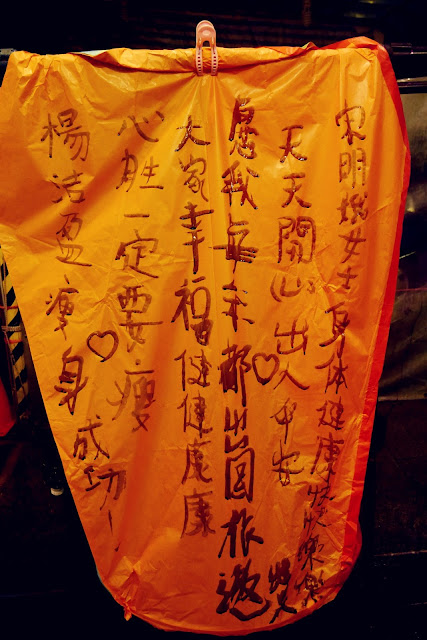 宋明女士身体健康快快樂樂
天天開心出入平安
愿我每年都出国旅遊
大家幸福健健康康
心胜一定要瘦♡
楊洁盈瘦身♡成功！